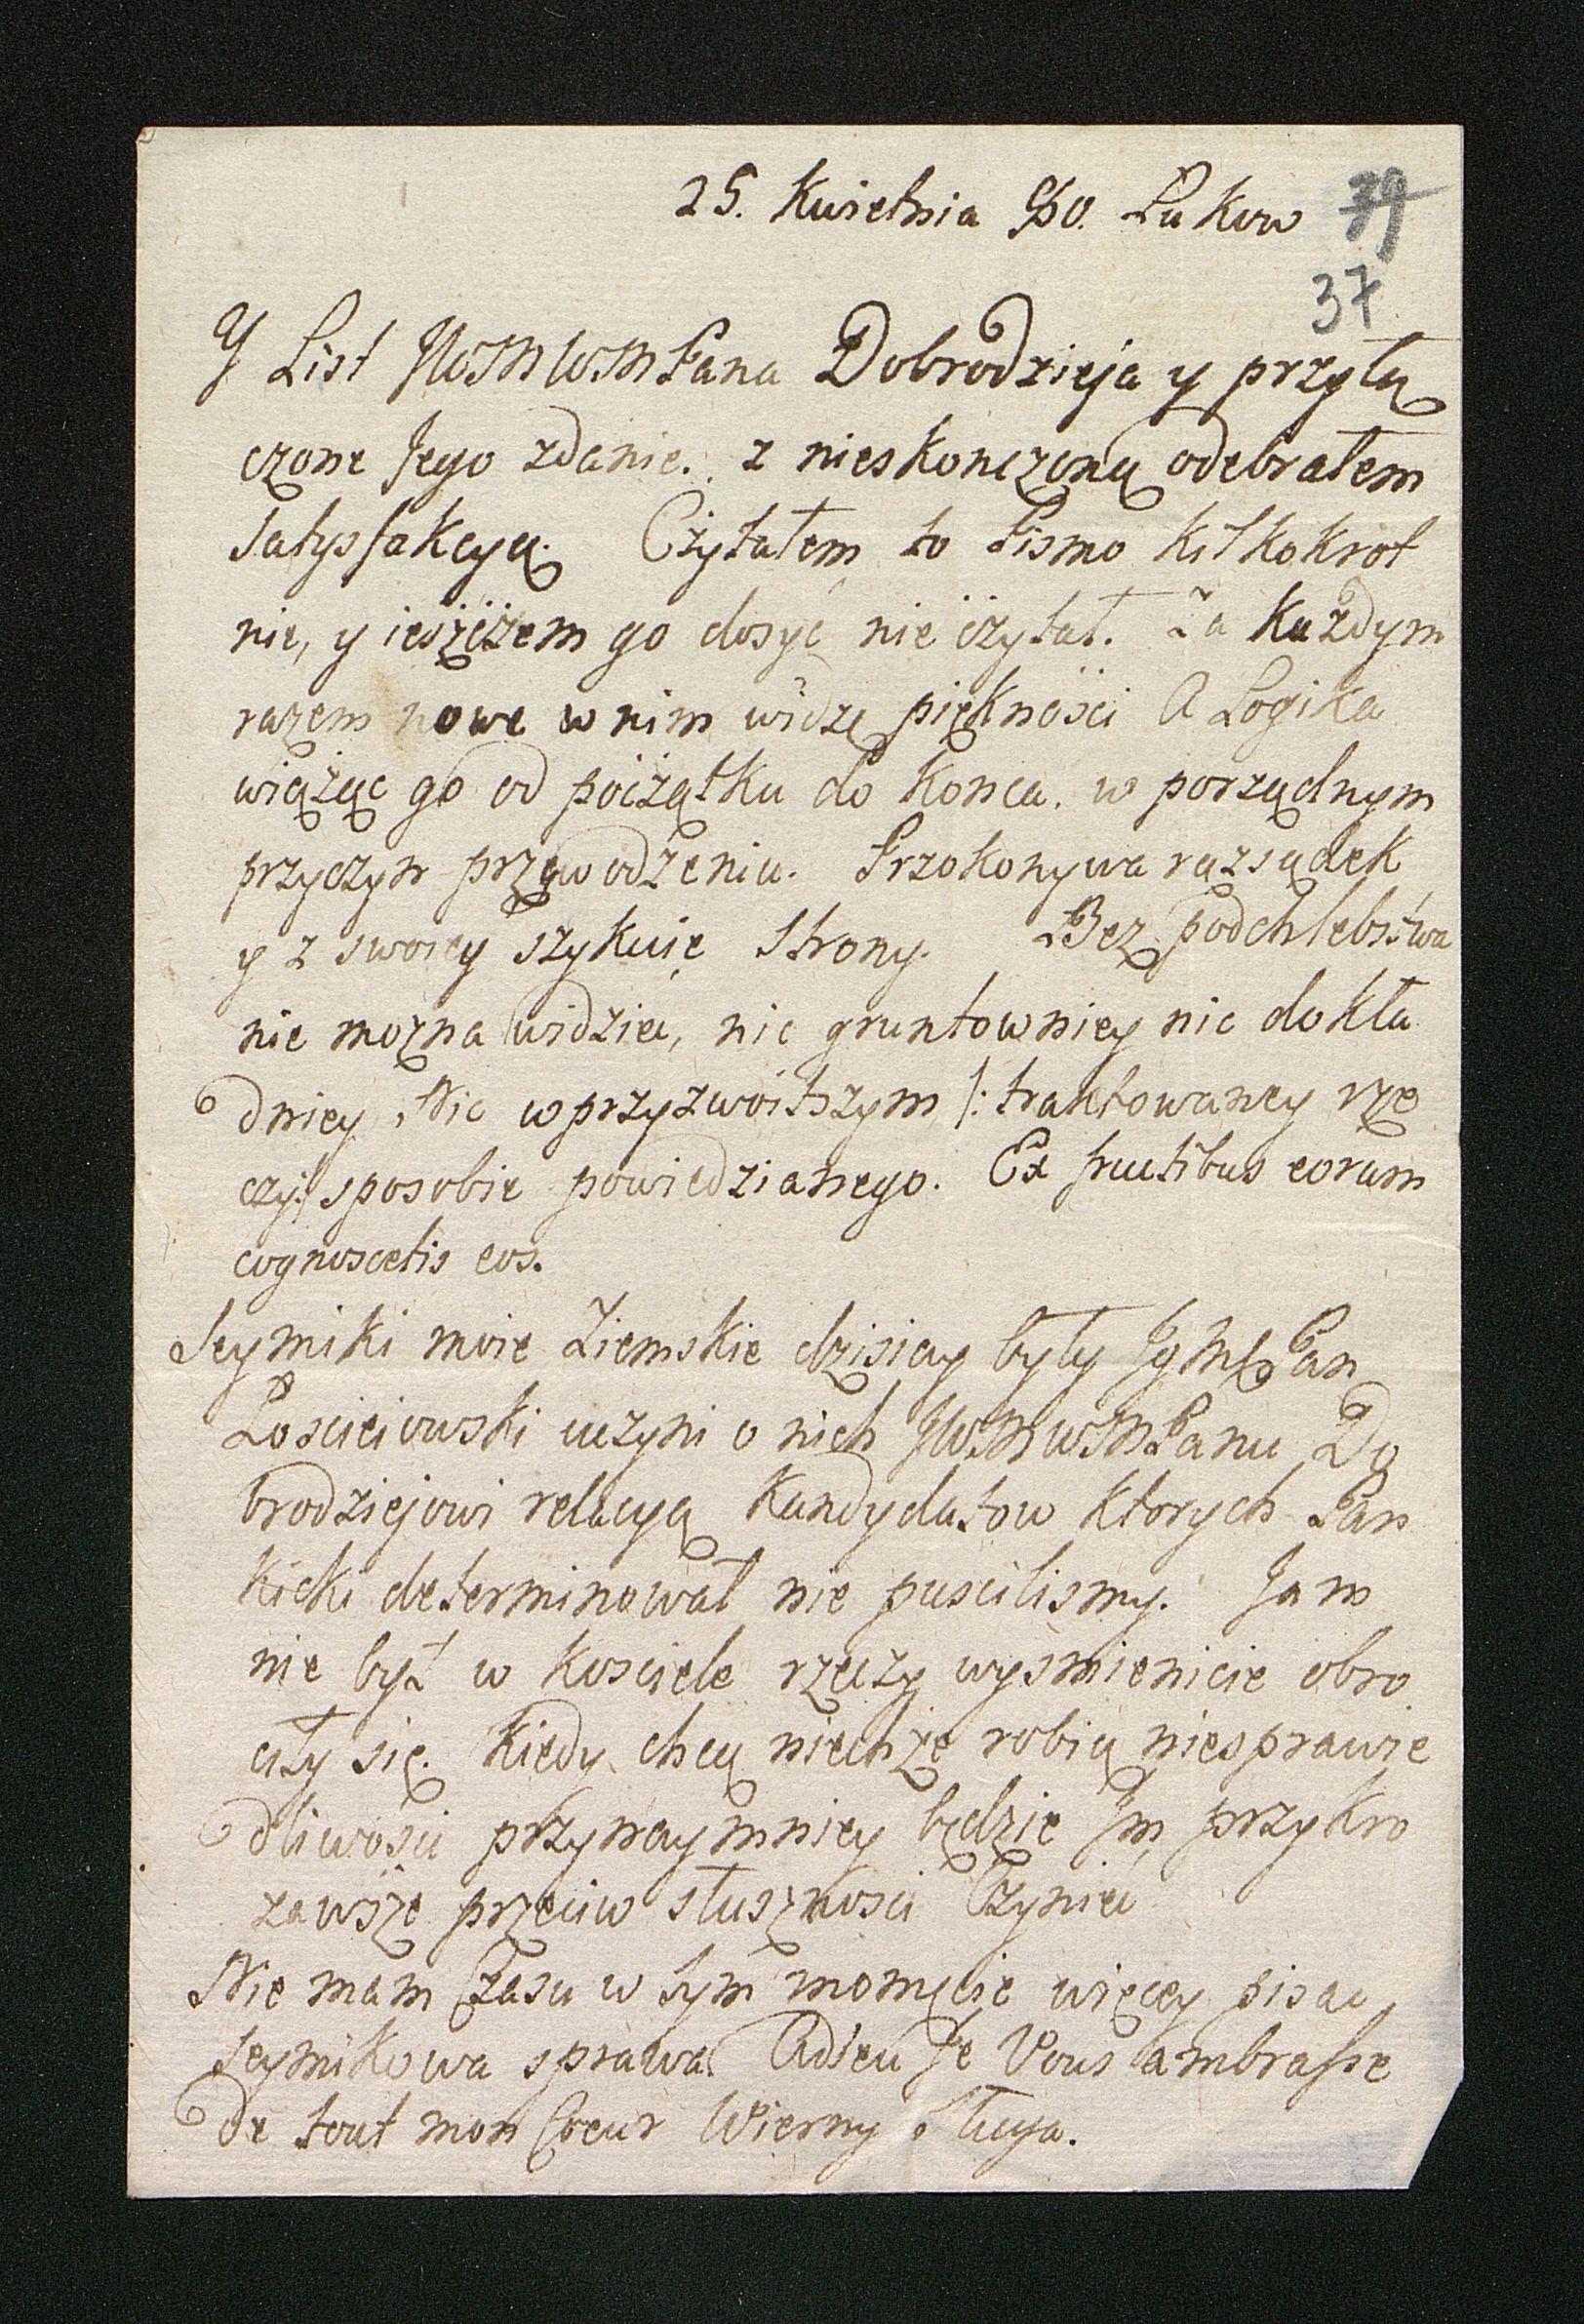 25. Kwietnia 90. Łukow 79
37
Y List JWWMWMPana Dobrodzieja y przyłą
czone Jego zdanie. z nieskonczoną odebrałem
Satysfakcyą. Czytałem to Pismo kilkokrot
nie, y ieszczem go dosyć nie czytał. Za każdym
razem nowe w nim widzę pięknosci A Logika
wiążąc go od początku do konca. w porządnym
przyczyn przywodzeniu. Przekonywa razsądek
y z swoiey szykuie strony. Bez podchlebstwa
nie mozna widziec, nic gruntowniey nic dokła
dniey, Nic w przyzwoitszym /: traktowaney rze
czy :/ sposobie powiedzianego. Ex fructibus eorum
cognoscetis eos.
Seymiki moie Ziemskie dzisiay były Pan
Łosciciowski uczyni o nich JWWMWMPanu Do
brodziejowi relacyą Kandydatow ktorych Pan
Kicki determinował nie puscilismy. Jam
nie był w Kosciele rzeczy wysmienicie obro
ciły się. Kiedy chcą niechże robią niesprawie
dliwosci przynaymniey będzie Jm przykro
zawsze przeciw słusznosci Czynic
Nie mam Czasu w tym momęcie więcey pisac
seymikowa sprawa. Adieu Je Vous ambrasse
De tout mon Coeur Wierny sługa.